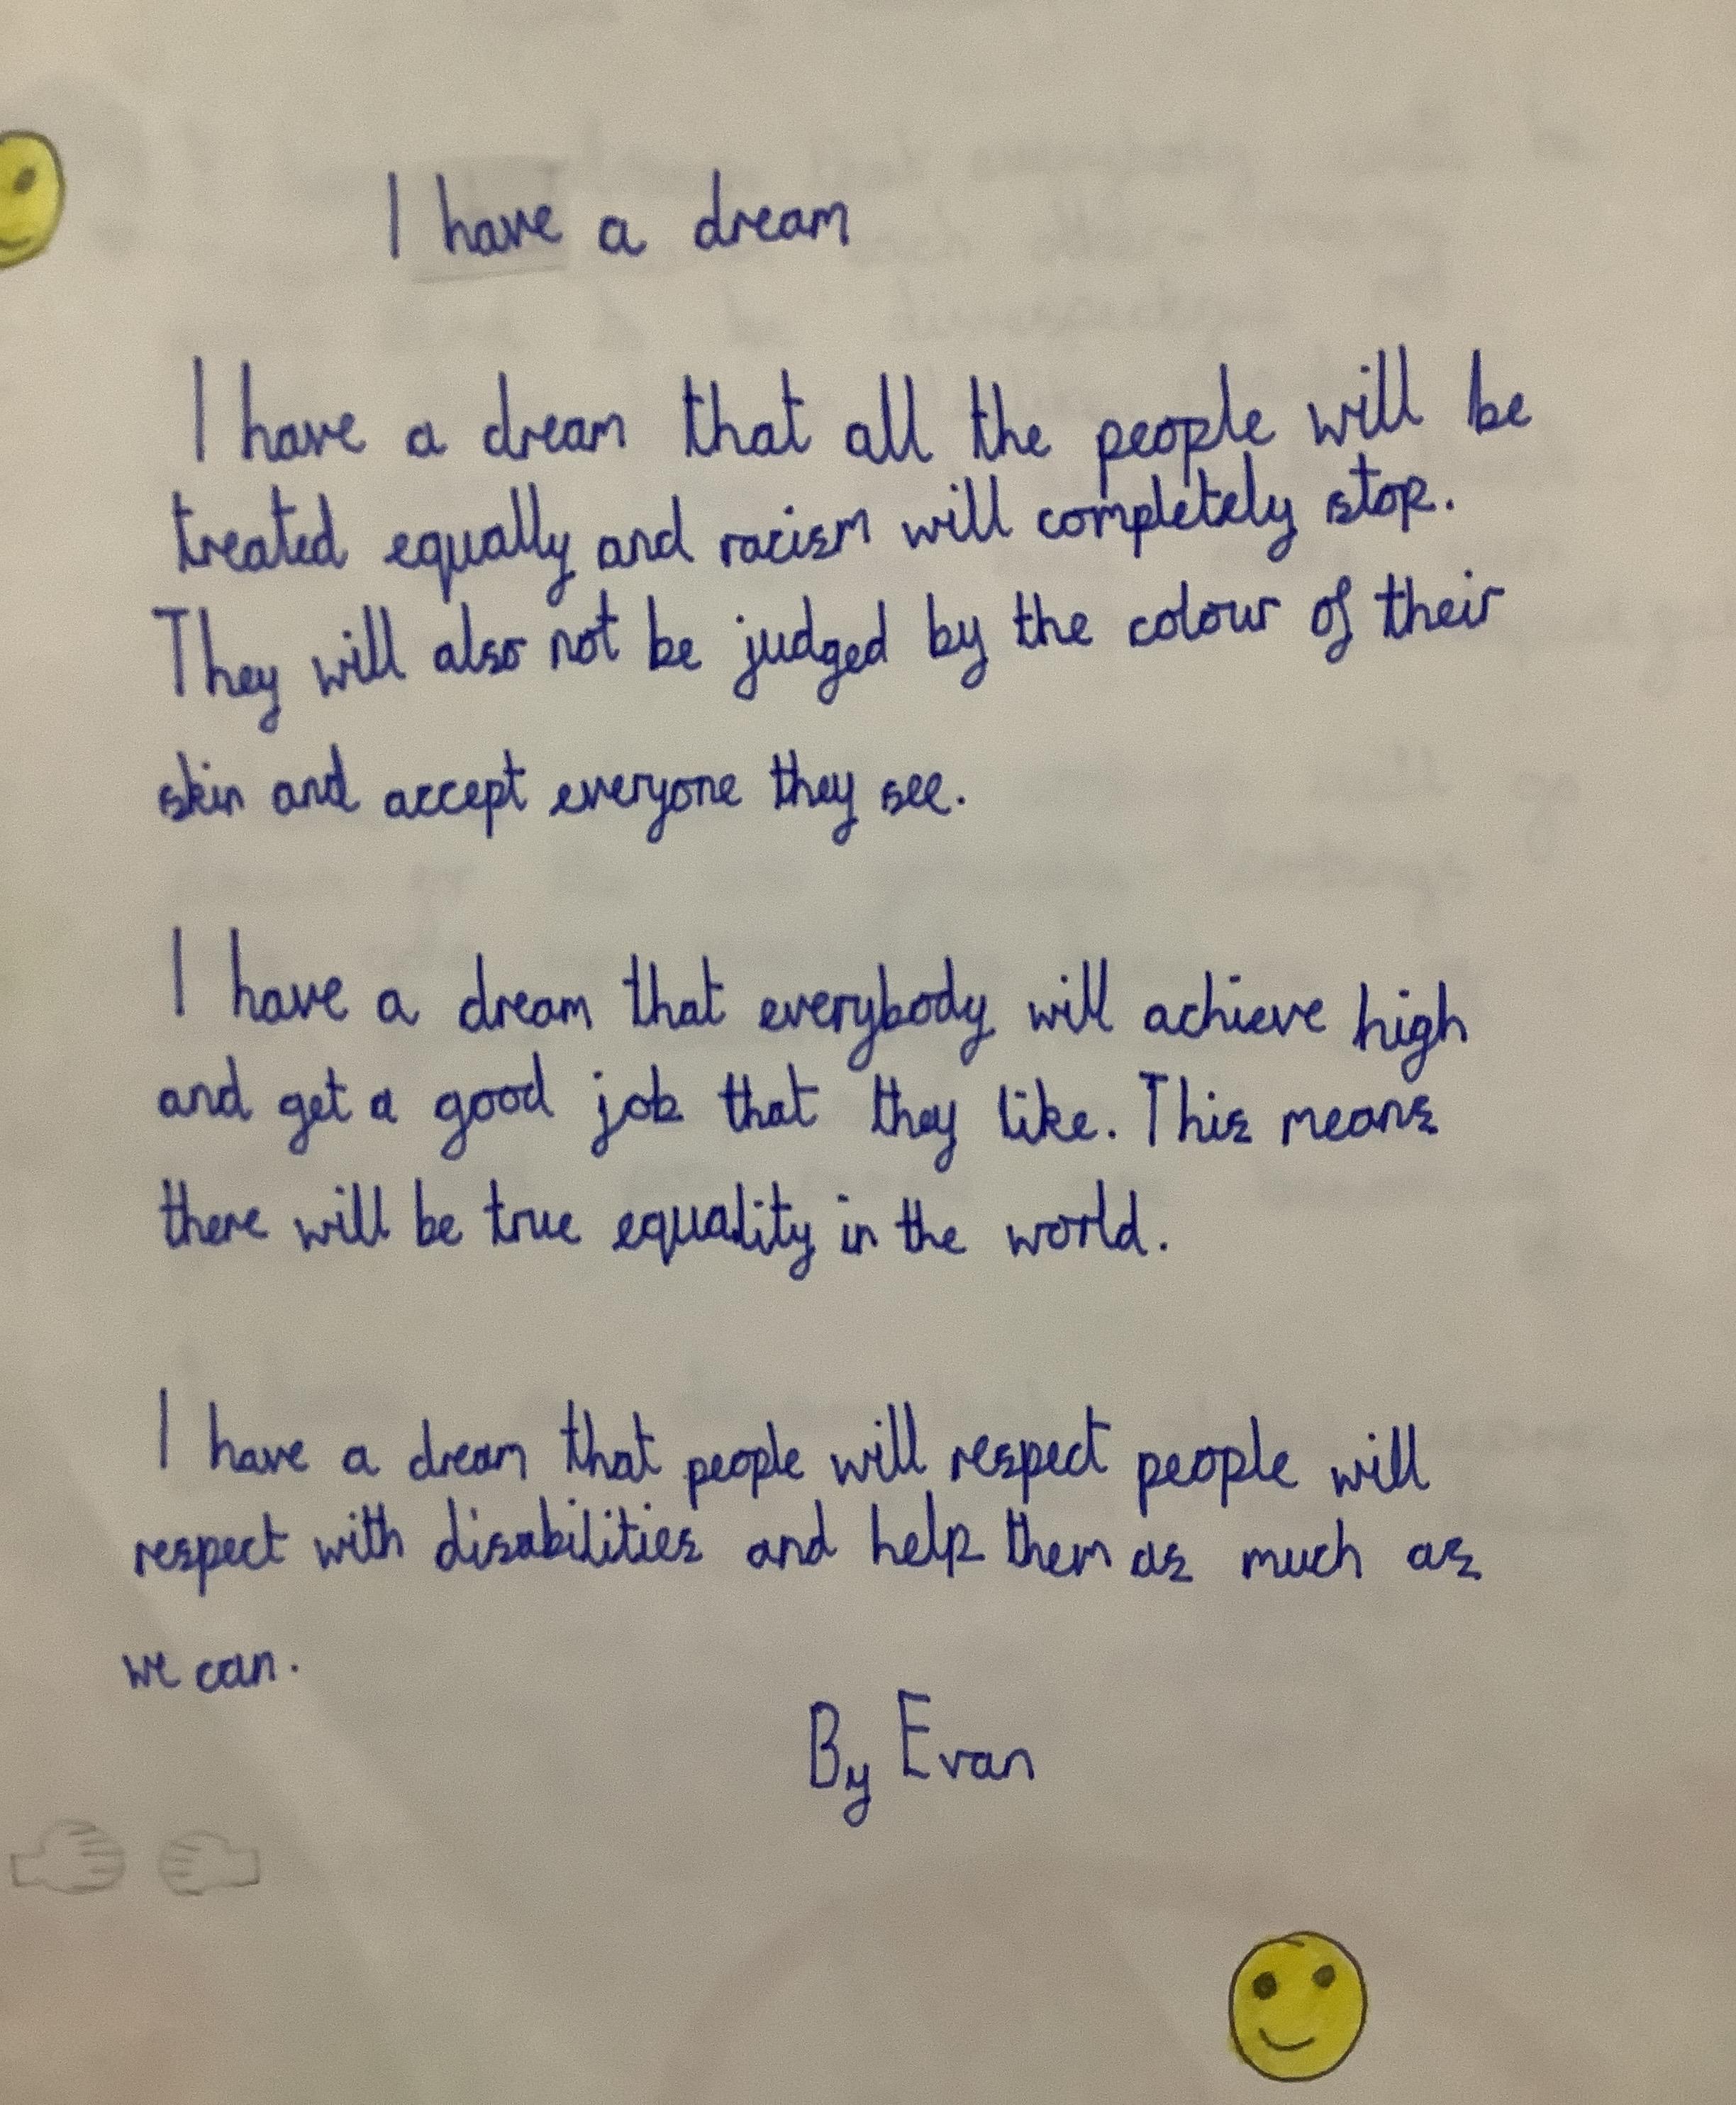 I have a dream
I have a dream that all the people will be
treated equally and racism will completely stop.
They will also not be judged by the colour of their
skin and accept everyone they see.
I have a dream that everybody will achieve high
and get a good job that they like. This means
there will be true equality in the world.
I have a dream that people will respect people will
respect with disabilities and help them as much as
we can.
By Evan